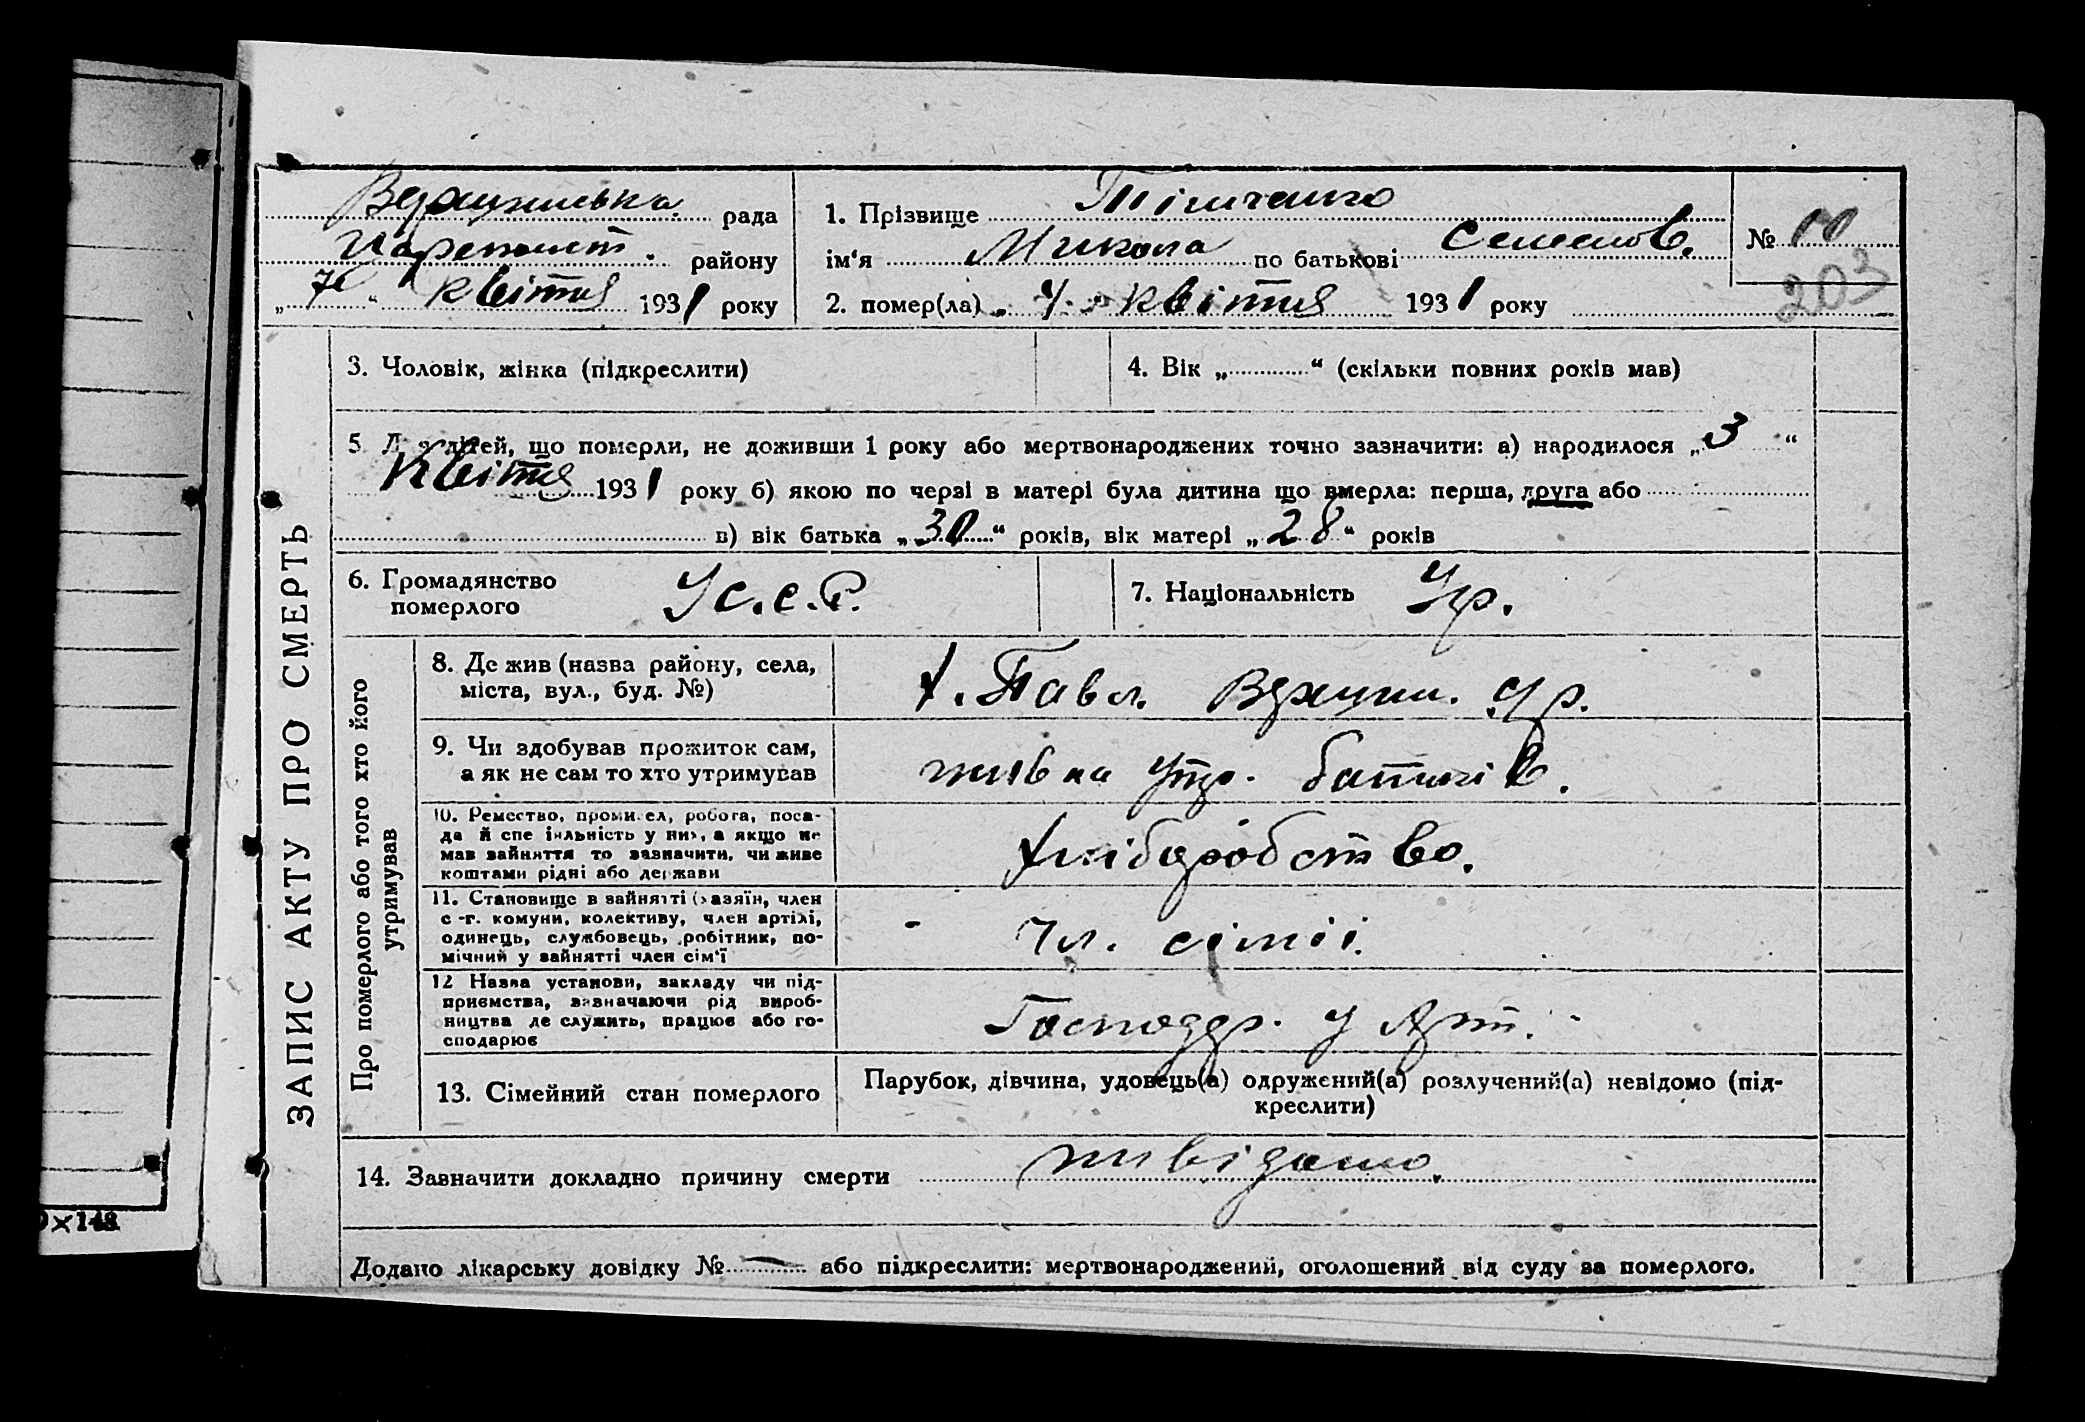 рада
району
„ 7 “ квітня 1931 року
1. Прізвище Тімченко
ім'я Микола по батькові Семенов.
2. помер(ла) „ 4 “ квітня 1931 року
№
203
ЗАПИС АКТУ ПРО СМЕРТЬ
3. Чоловік, жінка (підкреслити)
4. Вік „ “ (скільки повних років мав)
5. дітей, що померли, не доживши 1 року або мертвонароджених точно зазначити: а) народилося „ 3 “
квітня 1931 року б) якою по черзі в матері була дитина що вмерла: перша, друга або
в) вік батька „ 30 “ років, вік матері „ 28 “ років
6. Громадянство
померлого
У с.с.Р.
7. Національність Укр.
Про померлого або того хто його
утримував
8. Де жив (назва району, села,
міста, вул., буд. №)
х. Павл.
9. Чи здобував прожиток сам,
а як не сам то хто утримував
жив на утр. батьків.
10. Ремество, промисел, робота, поса-
да й спеціяльність у них, а якщо не
мав зайняття то зазначити, чи живе
коштами рідні або держави
хліборобство.
11. Становище в зайнятті (хазяїн, член
с.-г. комуни, колективу, член артілі,
одинець, службовець, робітник, по-
мічний у зайнятті член сім'ї
чл. сімії.
12 Назва установи, закладу чи під-
приємства, зазначаючи рід вироб-
ництва де служить, працює або го-
сподарює
Господар. у Арт.
13. Сімейний стан померлого
Парубок, дівчина, удовець(а) одружений(а) розлучений(а) невідомо (під-
креслити)
14. Зазначити докладно причину смерти невідомо.
Додано лікарську довідку № — або підкреслити: мертвонароджений, оголошений від суду за померлого.
×148